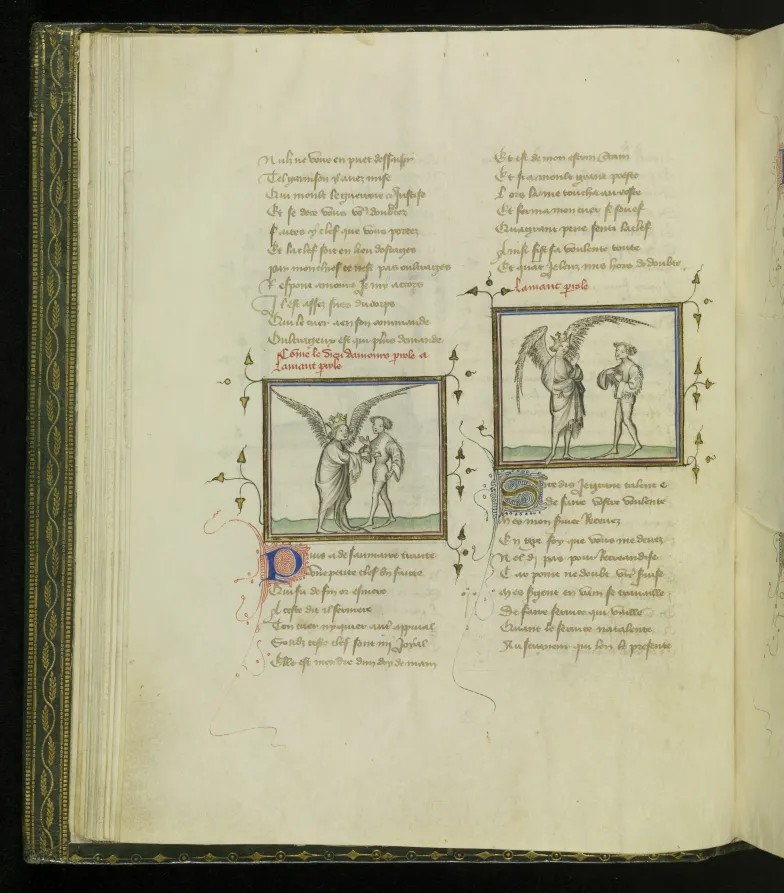 Nulz ne vous en puet dessaisir
Tel garnison y avez mise
Qui moult le guerroie & justise
Et se dece vous vo9 doubtez
Faites y clef que vous portez
Et la clef soit en lieu dostages
Par mon chief ce nest pas oultrages
Respont amours Je my acors
Il est assez sires du corps
Qui le cuer a en son commande
Oultrageux est qui plus demande
Come le dieu damours parle a
Lamant parle
Puis a de saumoniere traicte
Une petite clef bien faite
Qui fu de fin or esmere
A ceste dit il fermere
Ton cuer ny quier aut appuial
Soubz ceste clef sont mi Joyal
Elle est mendre dun doy de main
Et est de mon escrin
Et si a moult grant poeste
Lors la me toucha au coste
Et ferma mon cuer si souef
Qua grant peine senti la clef
Ainsi fist sa voulente toute
Et quant Je leux mis hors de doubte
Lamant parle
Sire dis Je grant talent e
De faire vostre voulente
Mes mon service Recevez
En gre foy que vous me devez
Nel di pas pour Recreandise
Car point ne doubt vre servise
Mes sergent en vain se travaille
De faire service qui vaille
Quant le service natalente
Au seigneur qui len le presente